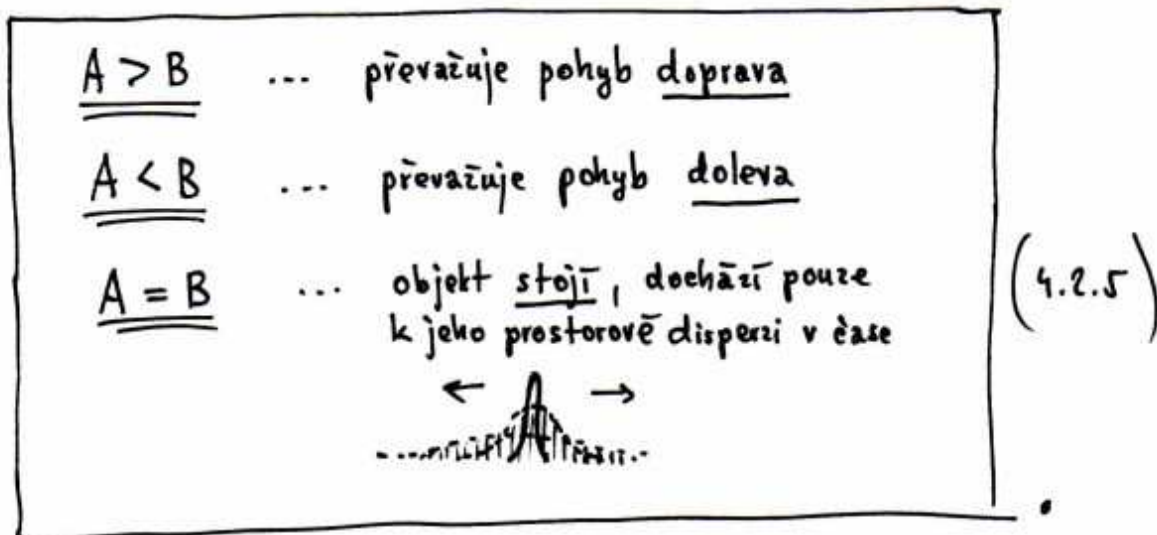 A > B ... převažuje pohyb doprava
A < B ... převažuje pohyb doleva
A = B ... objekt stojí, dochází pouze
k jeho prostorové disperzi v čase
(4.2.5)
← →